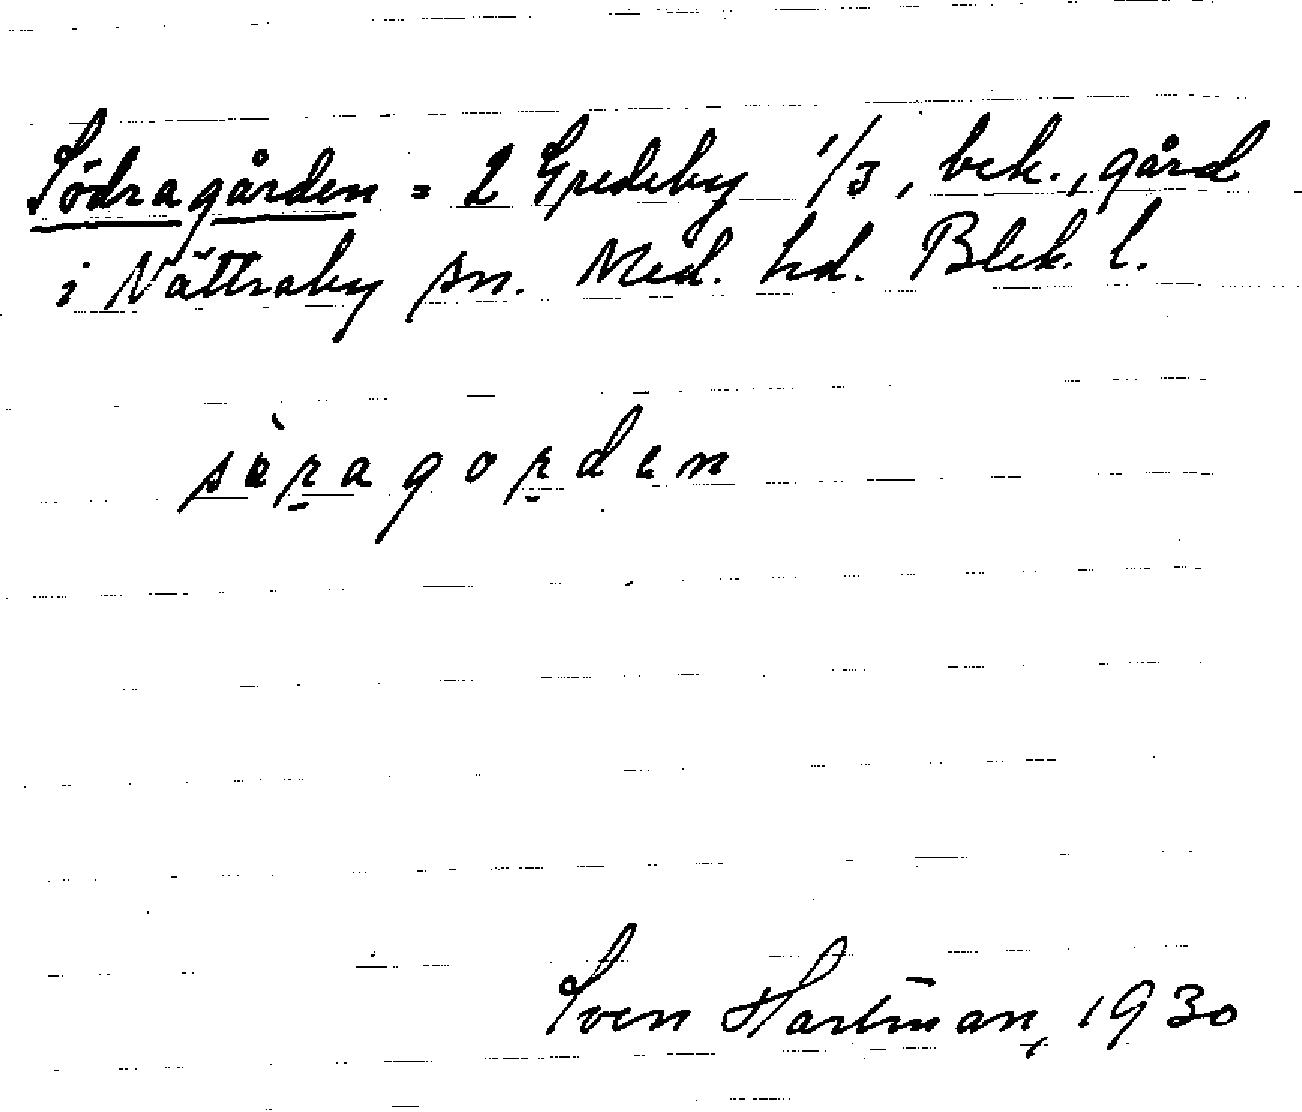 Södragården = 2 Gredeby 1/3, bek., gård
i Nättraby sn. Med. hd. Blek. l.
Sven Hartman, 1930